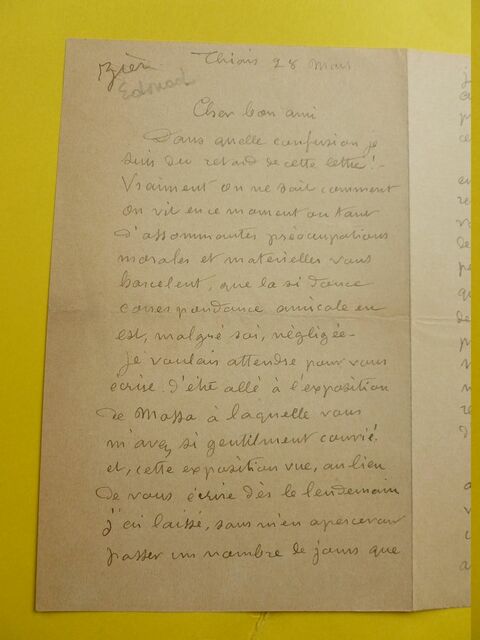 Thiais 28 Mars
Edouard
Cher bon ami
Dans quelle confusion je
suis du retard de cette lettre! -
Vraiment on ne sait comment
on vit en ce moment où tant
d'assommantes préocupations
morales et matérielles vous
harcelent, que la si douce
correspondance amicale en
est, malgré soi, négligée -
Je voulais attendre pour vous
écrire d'être allé à l'exposition
de Massa à laquelle vous
m'avez si gentilment convié.
et, cette exposition vue, au lieu
de vous écrire dès le lendemain
j'ai laissé, sans m'en apercevoir
passer un nombre de jours que